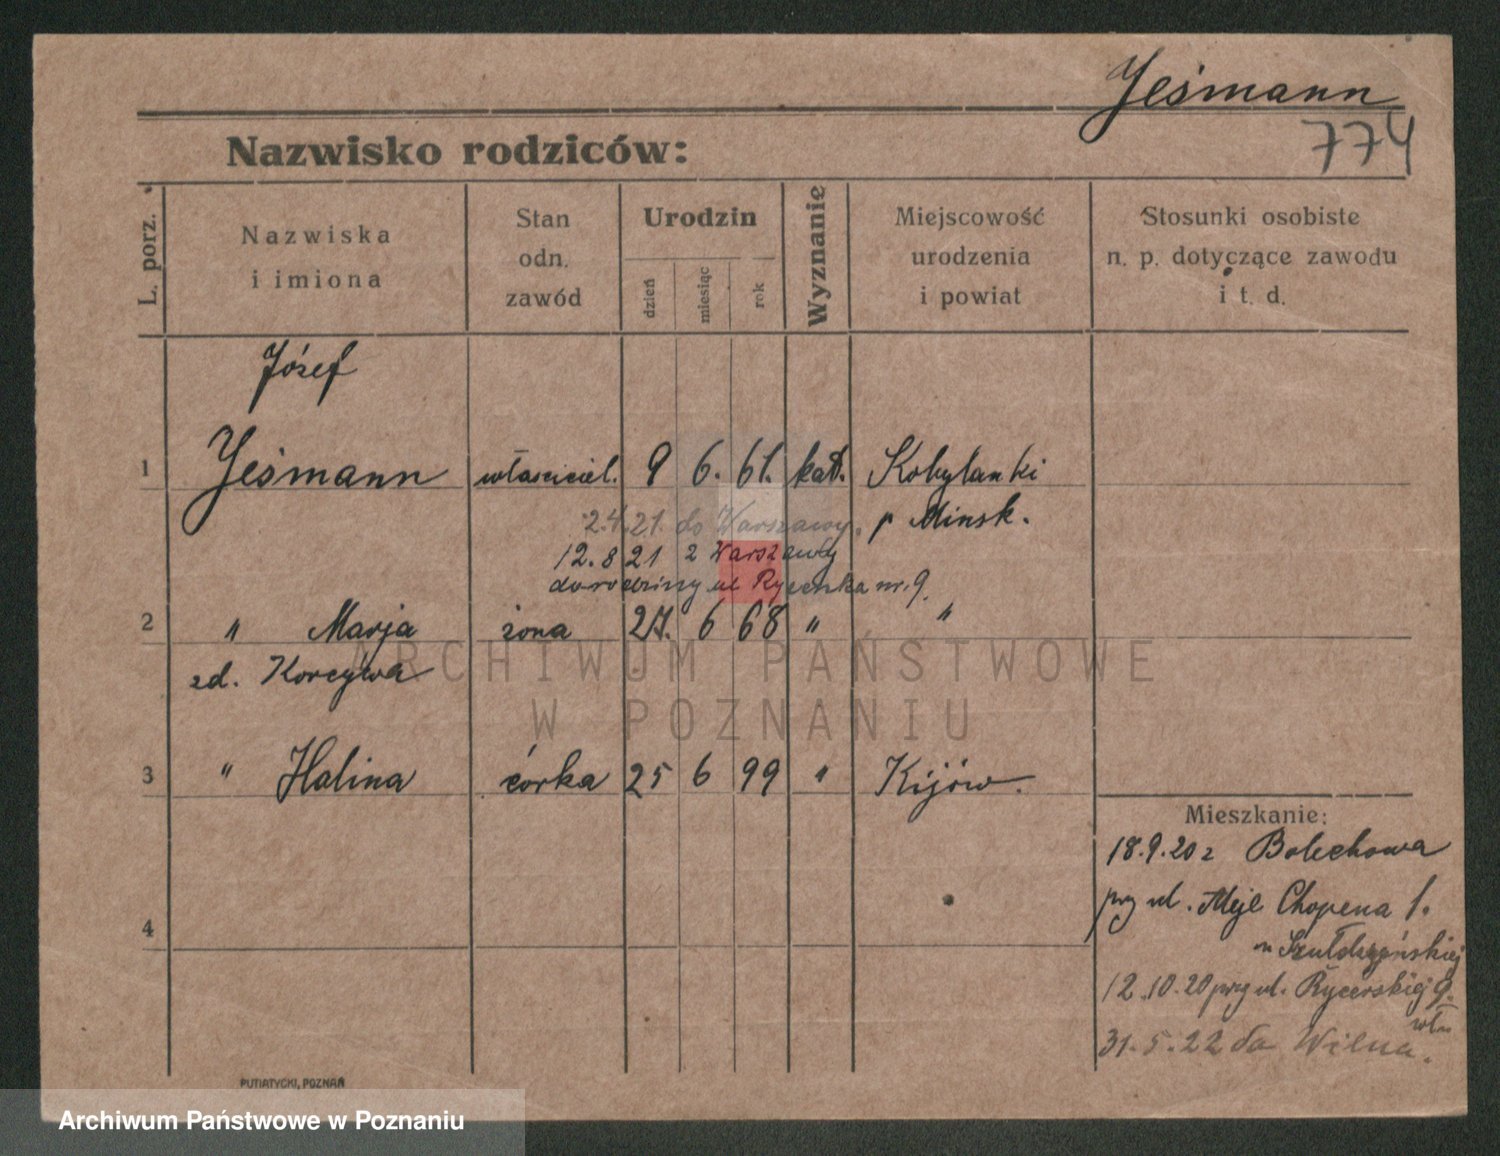 Jeśmann
774
Nazwisko rodziców:
L. porz.
Nazwiska
i imiona
Stan
odn.
zawód
Urodzin
dzień
miesiąc
rok
Wyznanie
Miejscowość
urodzenia
i powiat
Stosunki osobiste
n. p. dotyczące zawodu
i t. d.
Józef
1 Jeśmann właściciel. 9 6. 61. kat. Kobylanki
p Minsk.
2.4.21 do Warszawy.
12.8 21 z Warszawy
do rodziny ul Rycerska nr. 9.
2 " Marja żona 27. 6 68 " "
zd. Korcywa
3 " Halina córka 25 6 99 " Kijów.
4
Mieszkanie:
18.9.20 z Bolechowa
przy ul. Chopena 1.
12.10.20 przy ul. Rycerskiej 9.
31.5.22 do Wilna.
PUTIATYCKI, POZNAŃ
ARCHIWUM PAŃSTWOWE
W POZNANIU
Archiwum Państwowe w Poznaniu